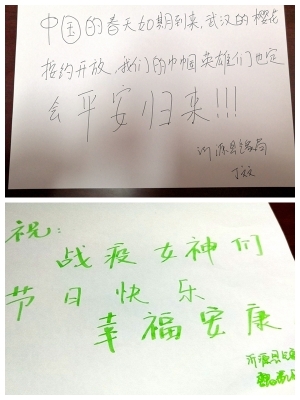 中国的春天如期到来,武汉的樱花
按约开放,我们的巾帼英雄们也定
会平安归来!!!
沂源县
祝:
战疫女神们
节日快乐
幸福安康
沂源县